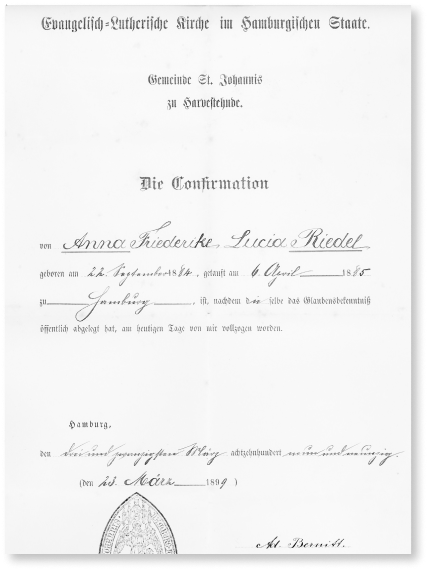 Evangelisch-Lutherische Kirche im Hamburgischen Staate.
Gemeinde St. Johannis
zu Harvestehude.
Die Confirmation
von Anna Friederike Lucia Riedel
geboren am 22. September 1884, getauft am 6. April 1885
zu Hamburg, ist, nachdem die selbe das Glaubensbekenntniß
öffentlich abgelegt hat, am heutigen Tage von mir vollzogen worden.
Hamburg,
den drei und zwanzigsten März achtzehnhundert neun und neunzig.
(den 23. März 1899)
Ad. Bernitt.